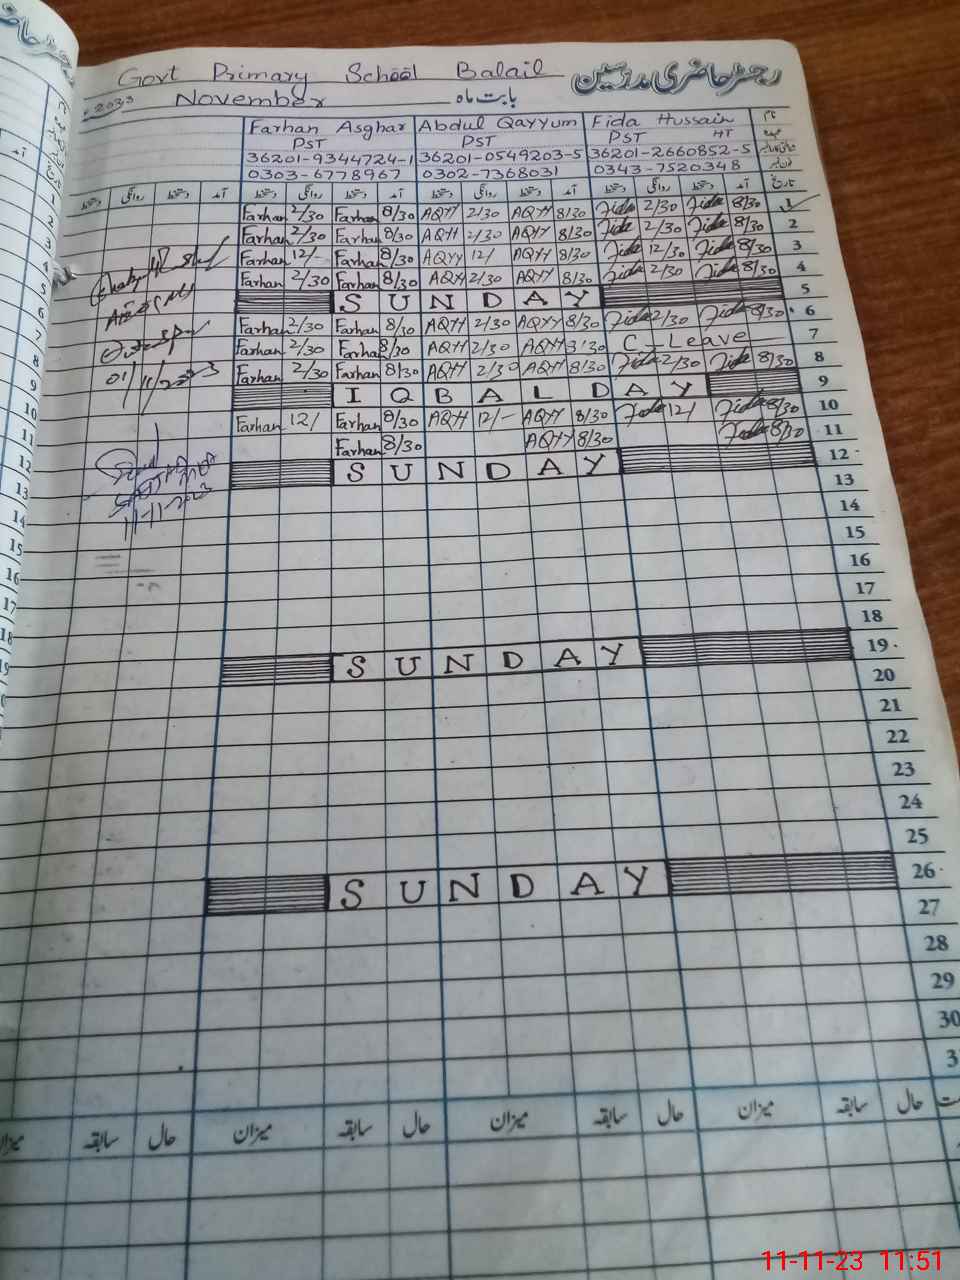 Govt Primary School Balail رجسٹر حاضری مدرسین
2023 November بابت ماہ
Farhan Asghar Abdul Qayyum Fida Hussain نام
PST PST PST HT عہدہ
36201-9344724-1 36201-0549203-5 36201-2660852-5
0303-6778967 0302-7368031 0343-7520348
دستخط روانگی دستخط آمد دستخط روانگی دستخط آمد دستخط روانگی دستخط آمد دستخط روانگی دستخط آمد تاریخ
Farhan 2/30 Farhan 8/30 AQH 2/30 AQH 8/30 Fida 2/30 Fida 8/30 1
Farhan 2/30 Farhan 8/30 AQH 2/30 AQH 8/30 Fida 2/30 Fida 8/30 2
Farhan 12/- Farhan 8/30 AQH 12/ AQH 8/30 Fida 12/30 Fida 8/30 3
Farhan 2/30 Farhan 8/30 AQH 2/30 AQH 8/30 Fida 2/30 Fida 8/30 4
SUNDAY 5
Farhan 2/30 Farhan 8/30 AQH 2/30 AQH 8/30 Fida 2/30 Fida 8/30 6
Farhan 2/30 Farhan 8/30 AQH 2/30 AQH 8/30 C-Leave 7
Farhan 2/30 Farhan 8/30 AQH 2/30 AQH 8/30 Fida 2/30 Fida 8/30 8
01/11/2023
IQBAL DAY 9
Farhan 12/ Farhan 8/30 AQH 12/- AQH 8/30 Fida 12/ Fida 8/30 10
Farhan 8/30 AQH 8/30 Fida 8/30 11
SUNDAY 12
13
11-11-2023
14
15
16
17
18
SUNDAY 19
20
21
22
23
24
25
SUNDAY 26
27
28
29
30
3
میزان سابقہ حال میزان سابقہ حال میزان سابقہ حال میزان سابقہ حال
11-11-23 11:51